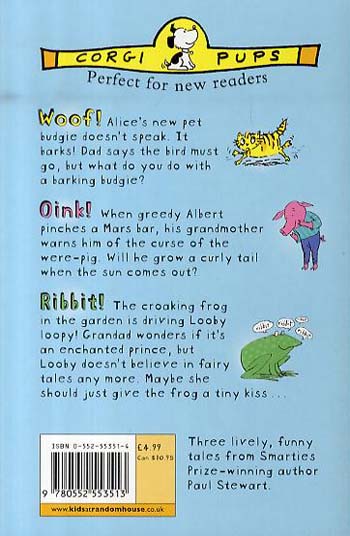 CORGI PUPS
Perfect for new readers
Woof! Alice's new pet
budgie doesn't speak. It
barks! Dad says the bird must
go, but what do you do with
a barking budgie?
Oink! When greedy Albert
pinches a Mars bar, his grandmother
warns him of the curse of the
were-pig. Will he grow a curly tail
when the sun comes out?
Ribbit! The croaking frog
in the garden is driving Looby
loopy! Grandad wonders if it's
an enchanted prince, but
Looby doesn't believe in fairy
tales any more. Maybe she
should just give the frog a tiny kiss ...
ribbit ribbit
ISBN 0-552-55351-4
£4.99
Can $10.95
9 780552 553513
www.kidsatrandomhouse.co.uk
Three lively, funny
tales from Smarties
Prize-winning author
Paul Stewart.